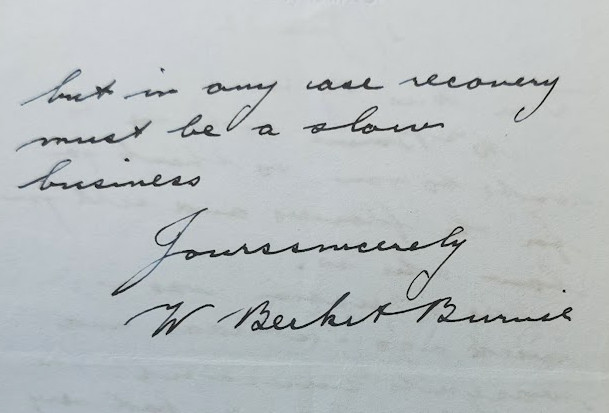 but in any case recovery
must be a slow
business
Yours sincerely
W Becket Burnie